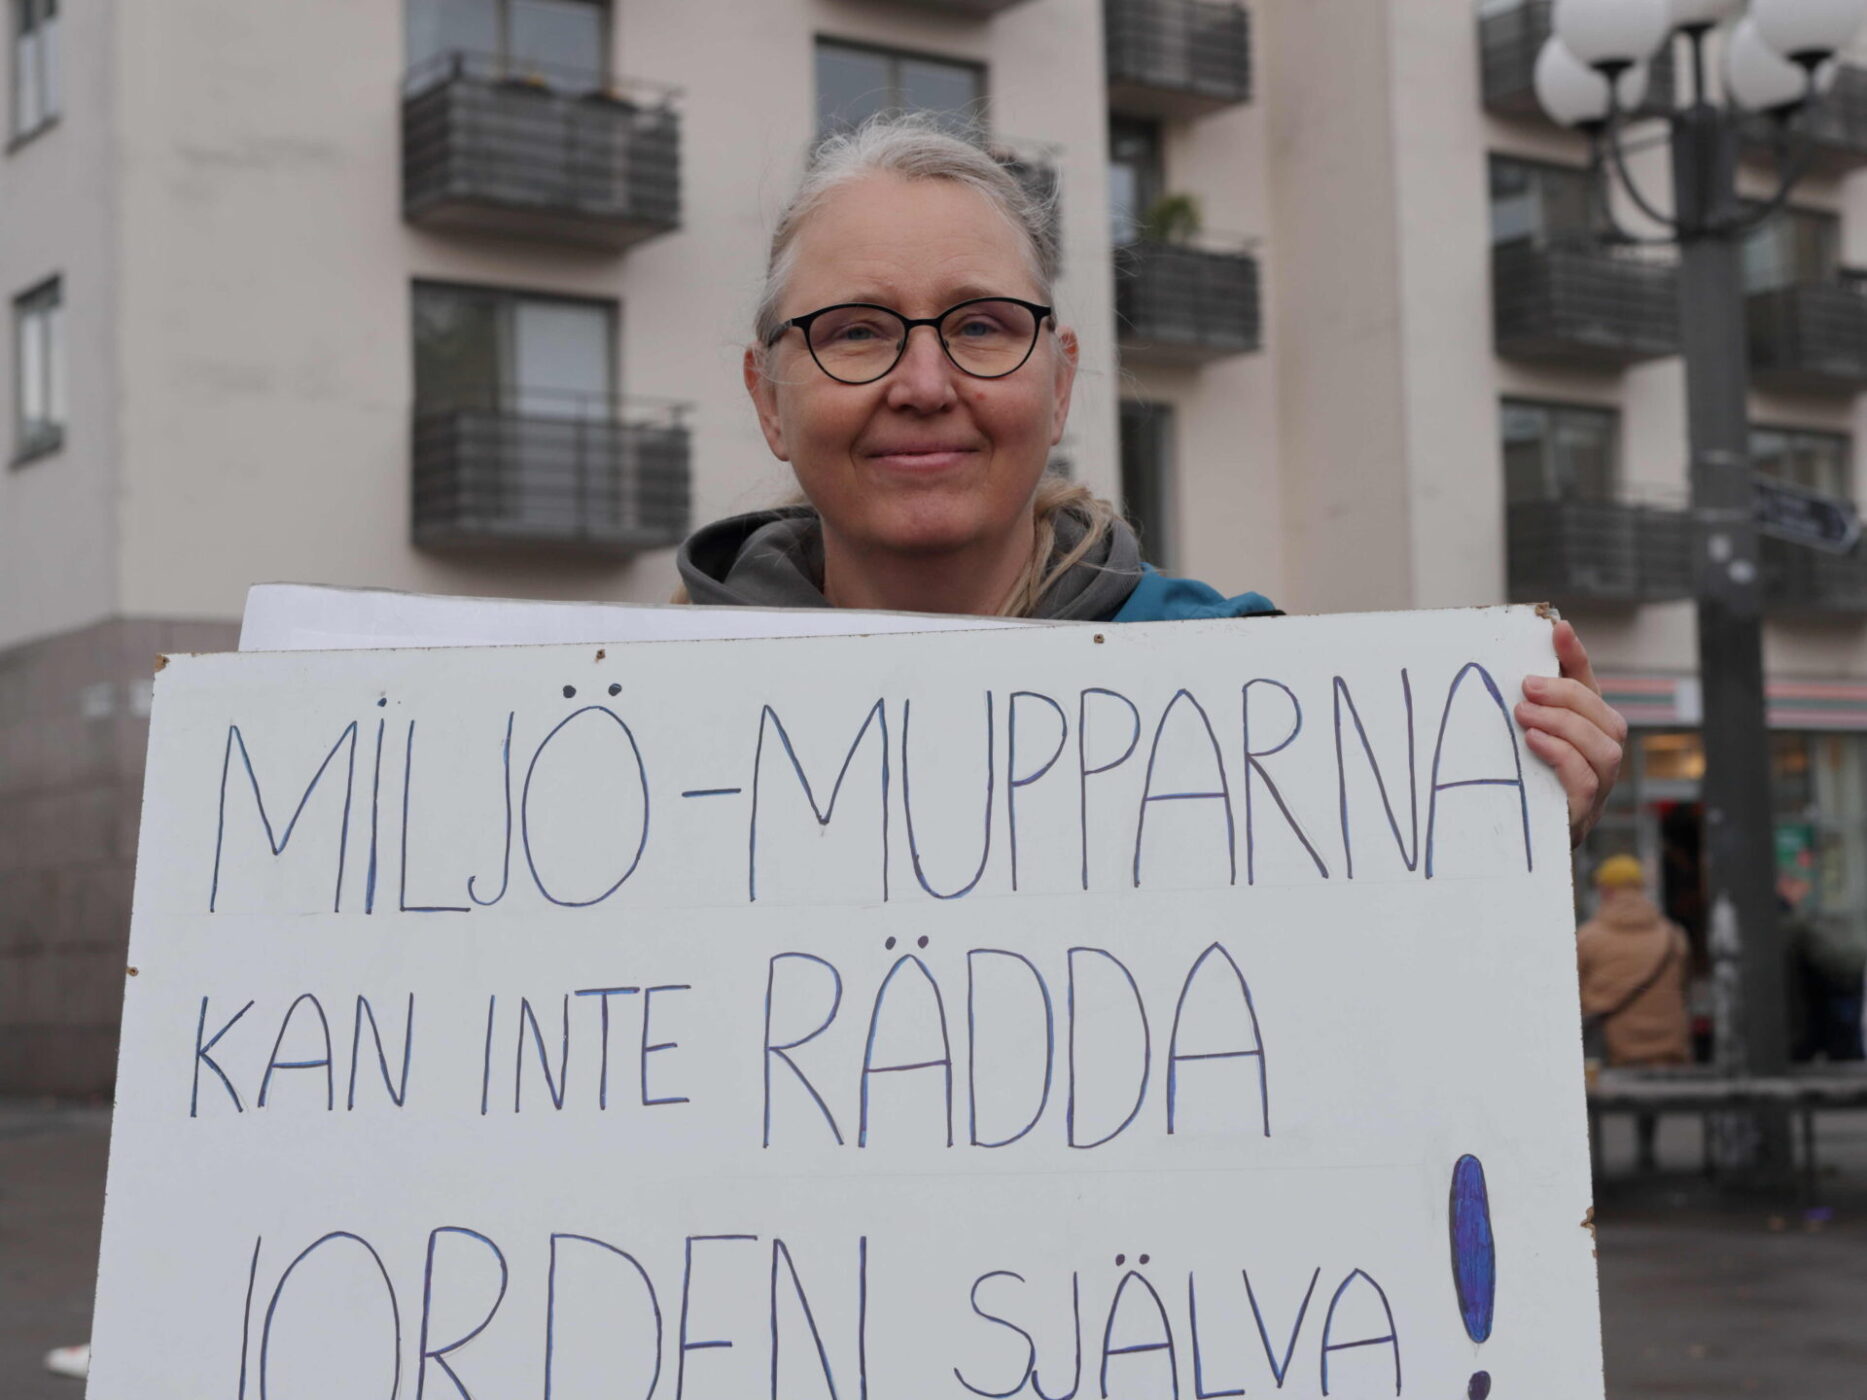 MILJÖ-MUPPARNA
KAN INTE RÄDDA
JORDEN SJÄLVA!